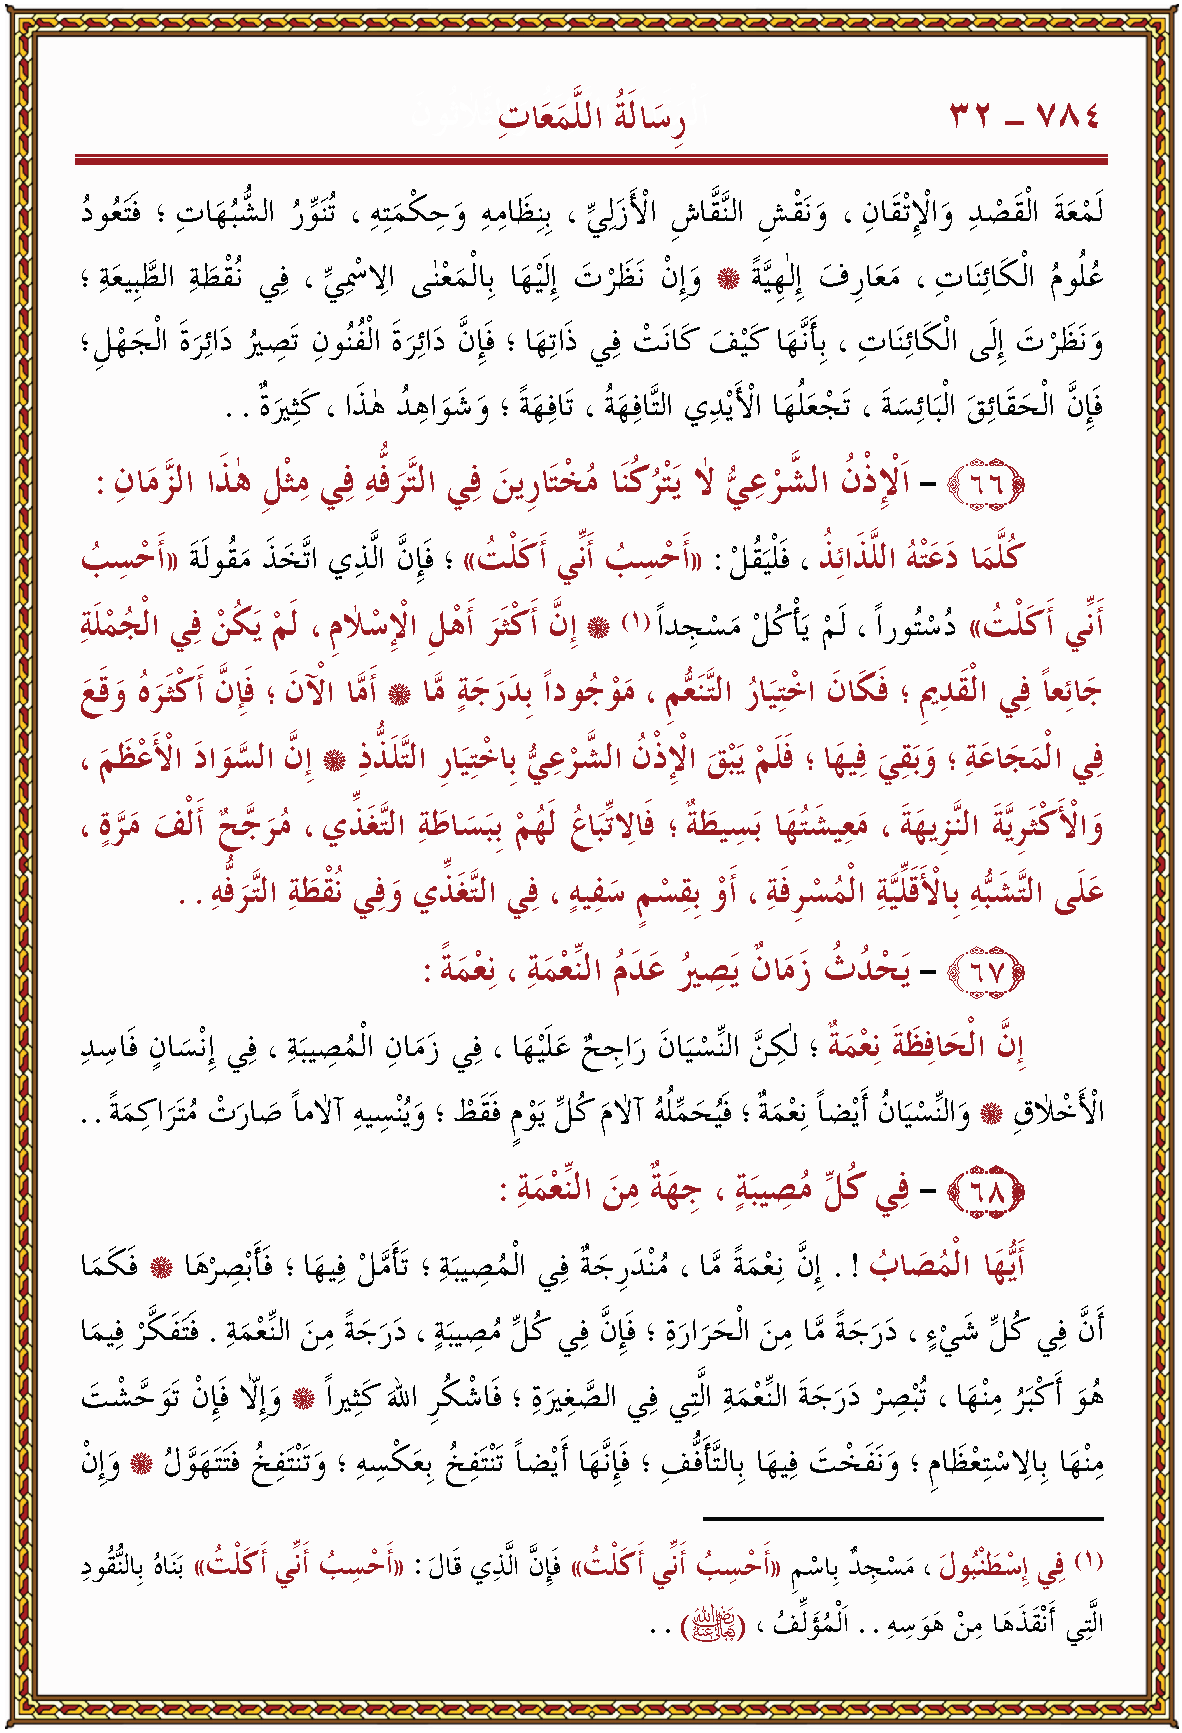 ٧٨٤ – ٣٢ رِسَالَةُ اللَّمَعَاتِ
لَمْعَةَ الْقَصْدِ وَالْإِتْقَانِ ، وَنَقْشِ النَّقَّاشِ الْأَزَلِيِّ ، بِنِظَامِهِ وَحِكْمَتِهِ ، تُنَوِّرُ الشُّبُهَاتِ ؛ فَتَعُودُ
عُلُومُ الْكَائِنَاتِ ، مَعَارِفَ إِلٰهِيَّةً ۞ وَإِنْ نَظَرْتَ إِلَيْهَا بِالْمَعْنٰى الِاسْمِيِّ ، فِي نُقْطَةِ الطَّبِيعَةِ ؛
وَنَظَرْتَ إِلَى الْكَائِنَاتِ ، بِأَنَّهَا كَيْفَ كَانَتْ فِي ذَاتِهَا ؛ فَإِنَّ دَائِرَةَ الْفُنُونِ تَصِيرُ دَائِرَةَ الْجَهْلِ ؛
فَإِنَّ الْحَقَائِقَ الْبَائِسَةَ ، تَجْعَلُهَا الْأَيْدِي التَّافِهَةُ ، تَافِهَةً ؛ وَشَوَاهِدُ هٰذَا ، كَثِيرَةٌ . .
﴿٦٦﴾ – اَلْإِذْنُ الشَّرْعِيُّ لَا يَتْرُكُنَا مُخْتَارِينَ فِي التَّرَفُّهِ فِي مِثْلِ هَذَا الزَّمَانِ :
كُلَّمَا دَعَتْهُ اللَّذَائِذُ ، فَلْيَقُلْ : «أَحْسِبُ أَنِّي أَكَلْتُ» ؛ فَإِنَّ الَّذِي اتَّخَذَ مَقُولَةَ «أَحْسِبُ
أَنِّي أَكَلْتُ» دُسْتُوراً ، لَمْ يَأْكُلْ مَسْجِداً (١) ۞ إِنَّ أَكْثَرَ أَهْلِ الْإِسْلَامِ ، لَمْ يَكُنْ فِي الْجُمْلَةِ
جَائِعاً فِي الْقَدِيمِ ؛ فَكَانَ اخْتِيَارُ التَّنَعُّمِ ، مَوْجُوداً بِدَرَجَةٍ مَّا ۞ أَمَّا الْآنَ ؛ فَإِنَّ أَكْثَرَهُ وَقَعَ
فِي الْمَجَاعَةِ ؛ وَبَقِيَ فِيهَا ؛ فَلَمْ يَبْقَ الْإِذْنُ الشَّرْعِيُّ بِاخْتِيَارِ التَّلَذُّذِ ۞ إِنَّ السَّوَادَ الْأَعْظَمَ ،
وَالْأَكْثَرِيَّةَ النَّزِيهَةَ ، مَعِيشَتُهَا بَسِيطَةٌ ؛ فَالِاتِّبَاعُ لَهُمْ بِبَسَاطَةِ التَّغَذِّي ، مُرَجَّحٌ أَلْفَ مَرَّةٍ ،
عَلَى التَّشَبُّهِ بِالْأَقَلِّيَّةِ الْمُسْرِفَةِ ، أَوْ بِقِسْمٍ سَفِيهٍ ، فِي التَّغَذِّي وَفِي نُقْطَةِ التَّرَفُّهِ . .
﴿٦٧﴾ – يَحْدُثُ زَمَانٌ يَصِيرُ عَدَمُ النِّعْمَةِ ، نِعْمَةً :
إِنَّ الْحَافِظَةَ نِعْمَةٌ ؛ لٰكِنَّ النِّسْيَانَ رَاجِحٌ عَلَيْهَا ، فِي زَمَانِ الْمُصِيبَةِ ، فِي إِنْسَانٍ فَاسِدِ
الْأَخْلَاقِ ۞ وَالنِّسْيَانُ أَيْضاً نِعْمَةٌ ؛ فَيُحَمِّلُهُ آلَامَ كُلِّ يَوْمٍ فَقَطْ ؛ وَيُنْسِيهِ آلَاماً صَارَتْ مُتَرَاكِمَةً . .
﴿٦٨﴾ – فِي كُلِّ مُصِيبَةٍ ، جِهَةٌ مِنَ النِّعْمَةِ :
أَيُّهَا الْمُصَابُ ! . إِنَّ نِعْمَةً مَّا ، مُنْدَرِجَةٌ فِي الْمُصِيبَةِ ؛ تَأَمَّلْ فِيهَا ؛ فَأَبْصِرْهَا ۞ فَكَمَا
أَنَّ فِي كُلِّ شَيْءٍ ، دَرَجَةً مَّا مِنَ الْحَرَارَةِ ؛ فَإِنَّ فِي كُلِّ مُصِيبَةٍ ، دَرَجَةً مِنَ النِّعْمَةِ . فَتَفَكَّرْ فِيمَا
هُوَ أَكْبَرُ مِنْهَا ، تُبْصِرْ دَرَجَةَ النِّعْمَةِ الَّتِي فِي الصَّغِيرَةِ ؛ فَاشْكُرِ اللهَ كَثِيراً ۞ وَإِلَّا فَإِنْ تَوَحَّشْتَ
مِنْهَا بِالِاسْتِعْظَامِ ؛ وَنَفَخْتَ فِيهَا بِالتَّأَفُّفِ ؛ فَإِنَّهَا أَيْضاً تَنْتَفِخُ بِعَكْسِهِ ؛ وَتَنْتَفِخُ فَتَتَهَوَّلُ ۞ وَإِنْ
(١) فِي إِسْطَنْبُولَ ، مَسْجِدٌ بِاسْمِ «أَحْسِبُ أَنِّي أَكَلْتُ» فَإِنَّ الَّذِي قَالَ : «أَحْسِبُ أَنِّي أَكَلْتُ» بَنَاهُ بِالنُّقُودِ
الَّتِي أَنْقَذَهَا مِنْ هَوَسِهِ . . اَلْمُؤَلِّفُ ، (رَضِيَ اللهُ تَعَالَى عَنْهُ) . .